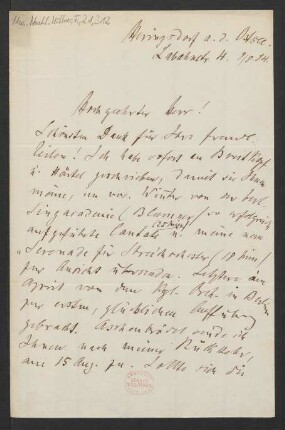 Heringsdorf a. d. Ostsee.
Hochgeehrter Herr!
Schönsten Dank für Ihre freundl.
Zeilen! Ich habe sofort an Breitkopf
u. Härtel geschrieben, damit sie Ihnen
meine, im vor. Winter von der Berl.
Singacademie (Blumner) so erfolgreich
aufgeführte Cantate u. meine neue
"Serenade für Streichorchester (18 Min)
zur Ansicht übersenden. Letztere im
April von dem Kgl. Orch. in Berlin
zur ersten, glücklichen Aufführung
gebracht. Aschenbrödel sende ich
Ihnen nach meiner Rückkehr,
am 15 Aug. zu. Sollte ein die